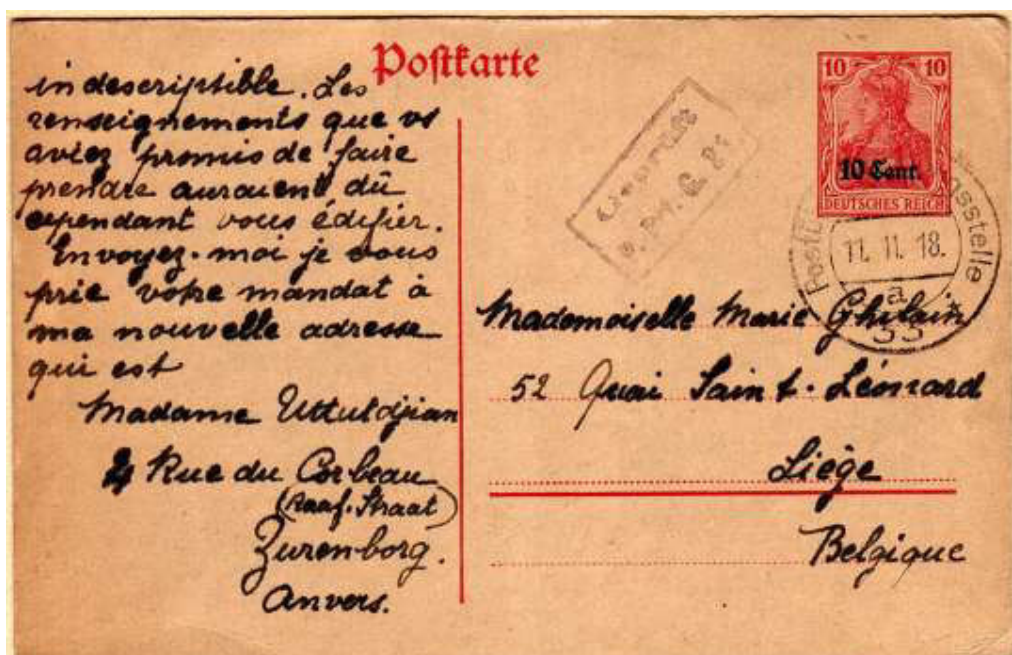 Postkarte
indescriptible. Les
renseignements que vs
aviez promis de faire
prendre auraient dû
cependant vous édifier.
Envoyez-moi je vous
prie votre mandat à
ma nouvelle adresse
qui est
Madame Uttuldjian
4 Rue du Corbeau
(Raaf-Straat)
Zurenborg.
Anvers.
Geprüft
10 10
10 Cent.
DEUTSCHES REICH
11. 11. 18.
a
33 *
Mademoiselle Marie Ghilain
52 Quai Saint-Léonard
Liège
Belgique